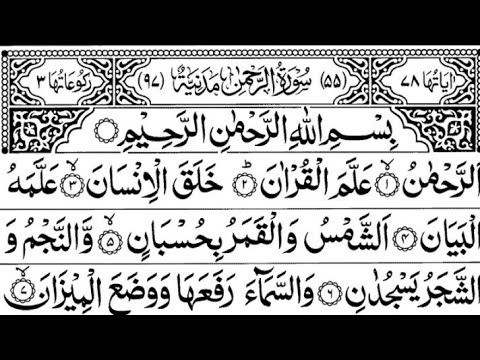 اٰیَاتُهَا ٧٨ (٥٥) سُوْرَةُ الرَّحْمٰنِ مَدَنِيَّةٌ (٩٧) رُكُوْعَاتُهَا ٣
بِسْمِ اللهِ الرَّحْمٰنِ الرَّحِيْمِ
اَلرَّحْمٰنُ ١ عَلَّمَ الْقُرْاٰنَ ٢ خَلَقَ الْاِنْسَانَ ٣ عَلَّمَهُ
الْبَيَانَ ٤ اَلشَّمْسُ وَالْقَمَرُ بِحُسْبَانٍ ٥ وَّالنَّجْمُ وَ
الشَّجَرُ يَسْجُدٰنِ ٦ وَالسَّمَآءَ رَفَعَهَا وَوَضَعَ الْمِيْزَانَ ٧